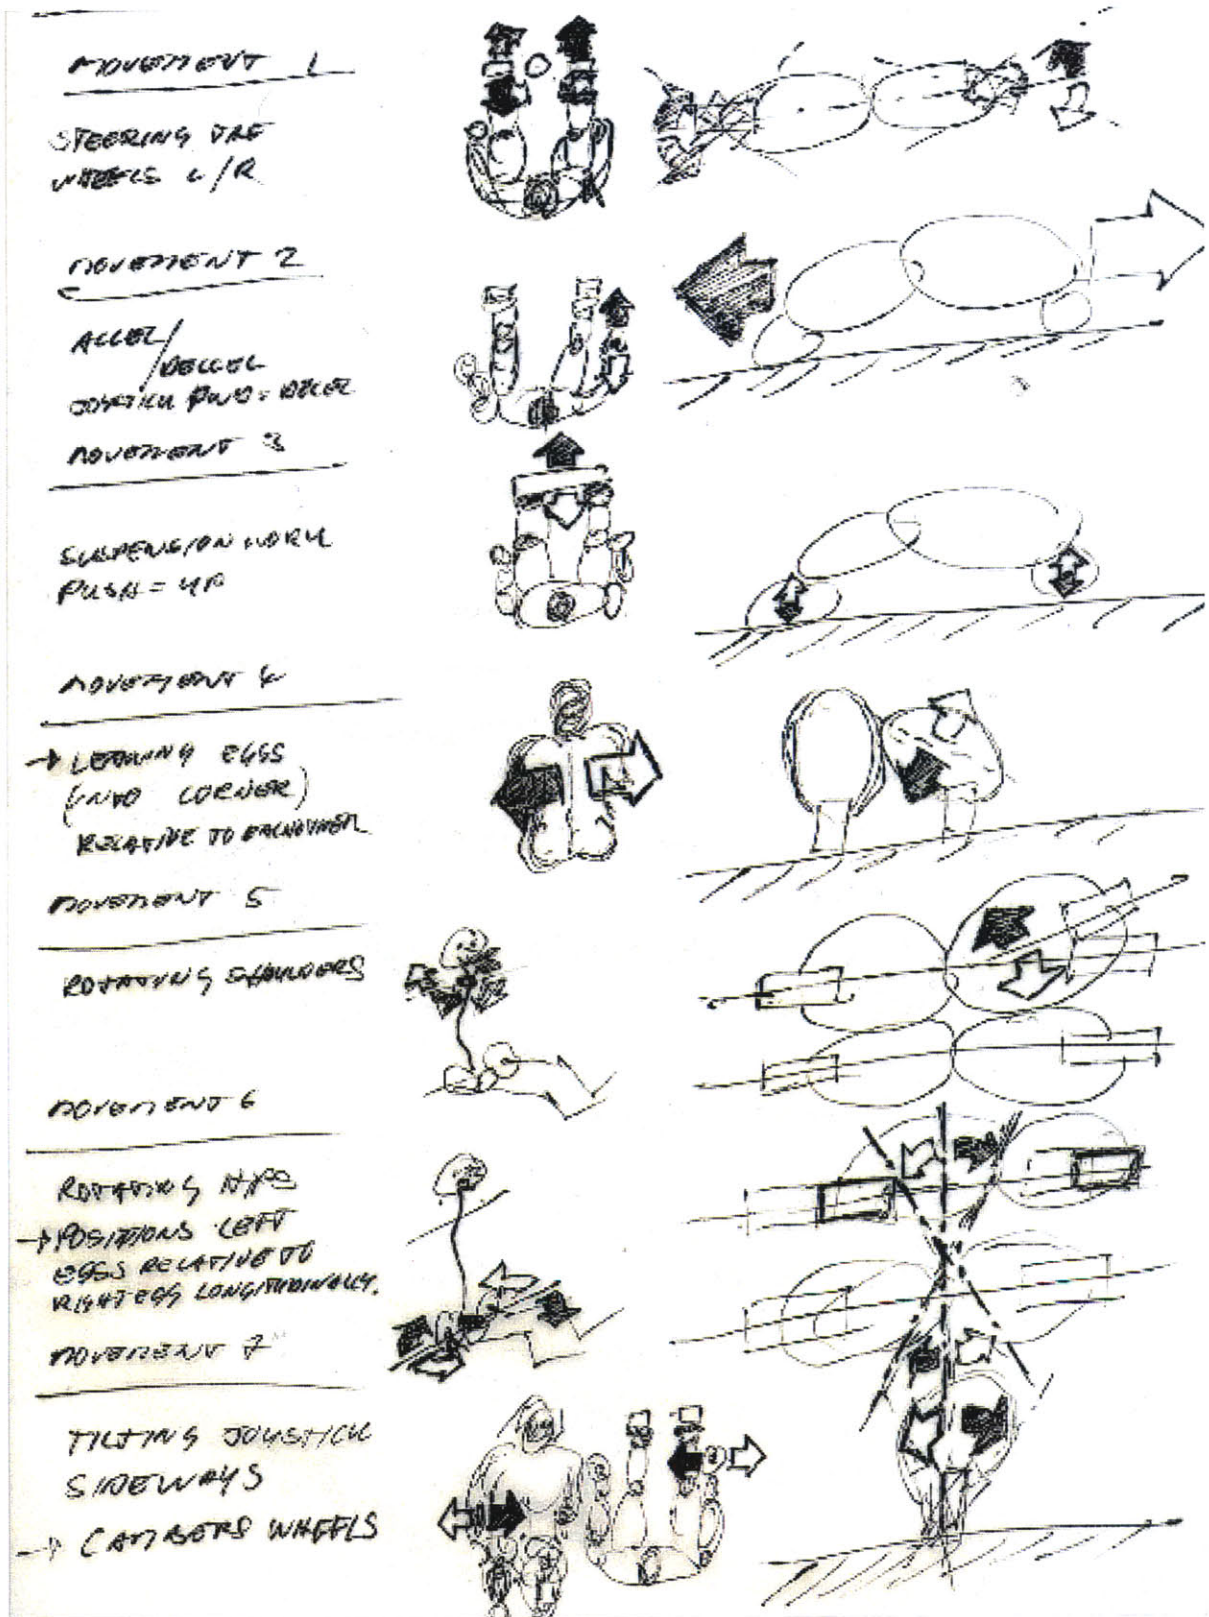 MOVEMENT 1
STEERING THE
WHEELS L/R
MOVEMENT 2
ACCEL/
DECCEL
JOYSTICK FWD = ACCEL
MOVEMENT 3
SUSPENSION WORK
PUSH = UP
MOVEMENT 4
→ LEANING EGGS
(INTO CORNER)
RELATIVE TO EACHOTHER
MOVEMENT 5
ROTATING SHOULDERS
MOVEMENT 6
ROTATING HIPS
→ POSITIONS LEFT
EGGS RELATIVE TO
RIGHT EGG LONGITUDINALLY.
MOVEMENT 7
TILTING JOYSTICK
SIDEWAYS
→ CAMBERS WHEELS